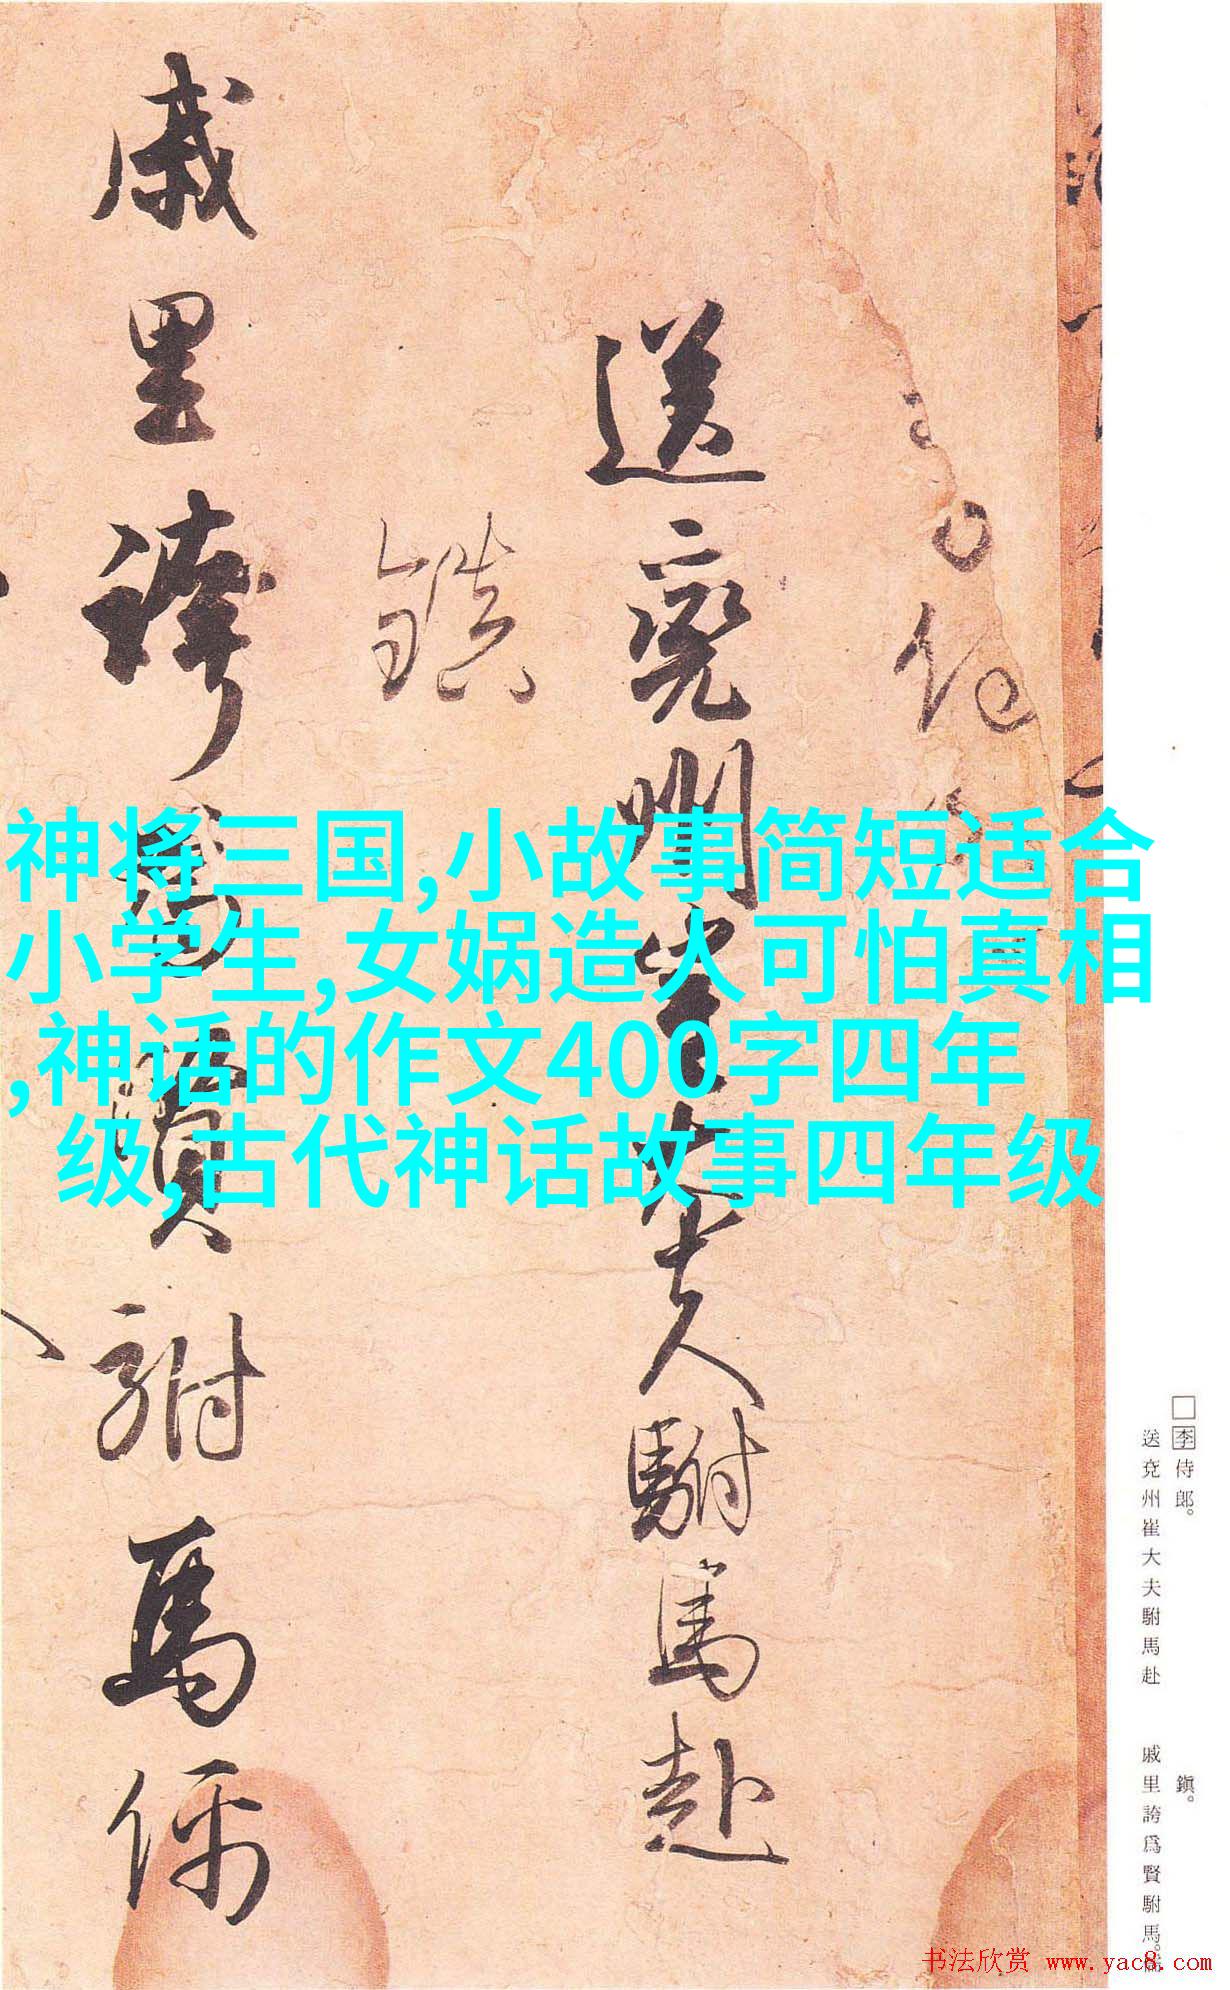 神将三国,小故事简短适合
小学生,女娲造人可怕真相
,神话的作文400字四年
级,古代神话故事四年级
送兗州崔大夫駙馬赴
鎮
戚里誇為賢駙馬儒
□李侍郎。
送兗州崔大夫駙馬赴
鎮。
戚里誇爲賢駙馬。儒
书法欣赏 www.yac8.com